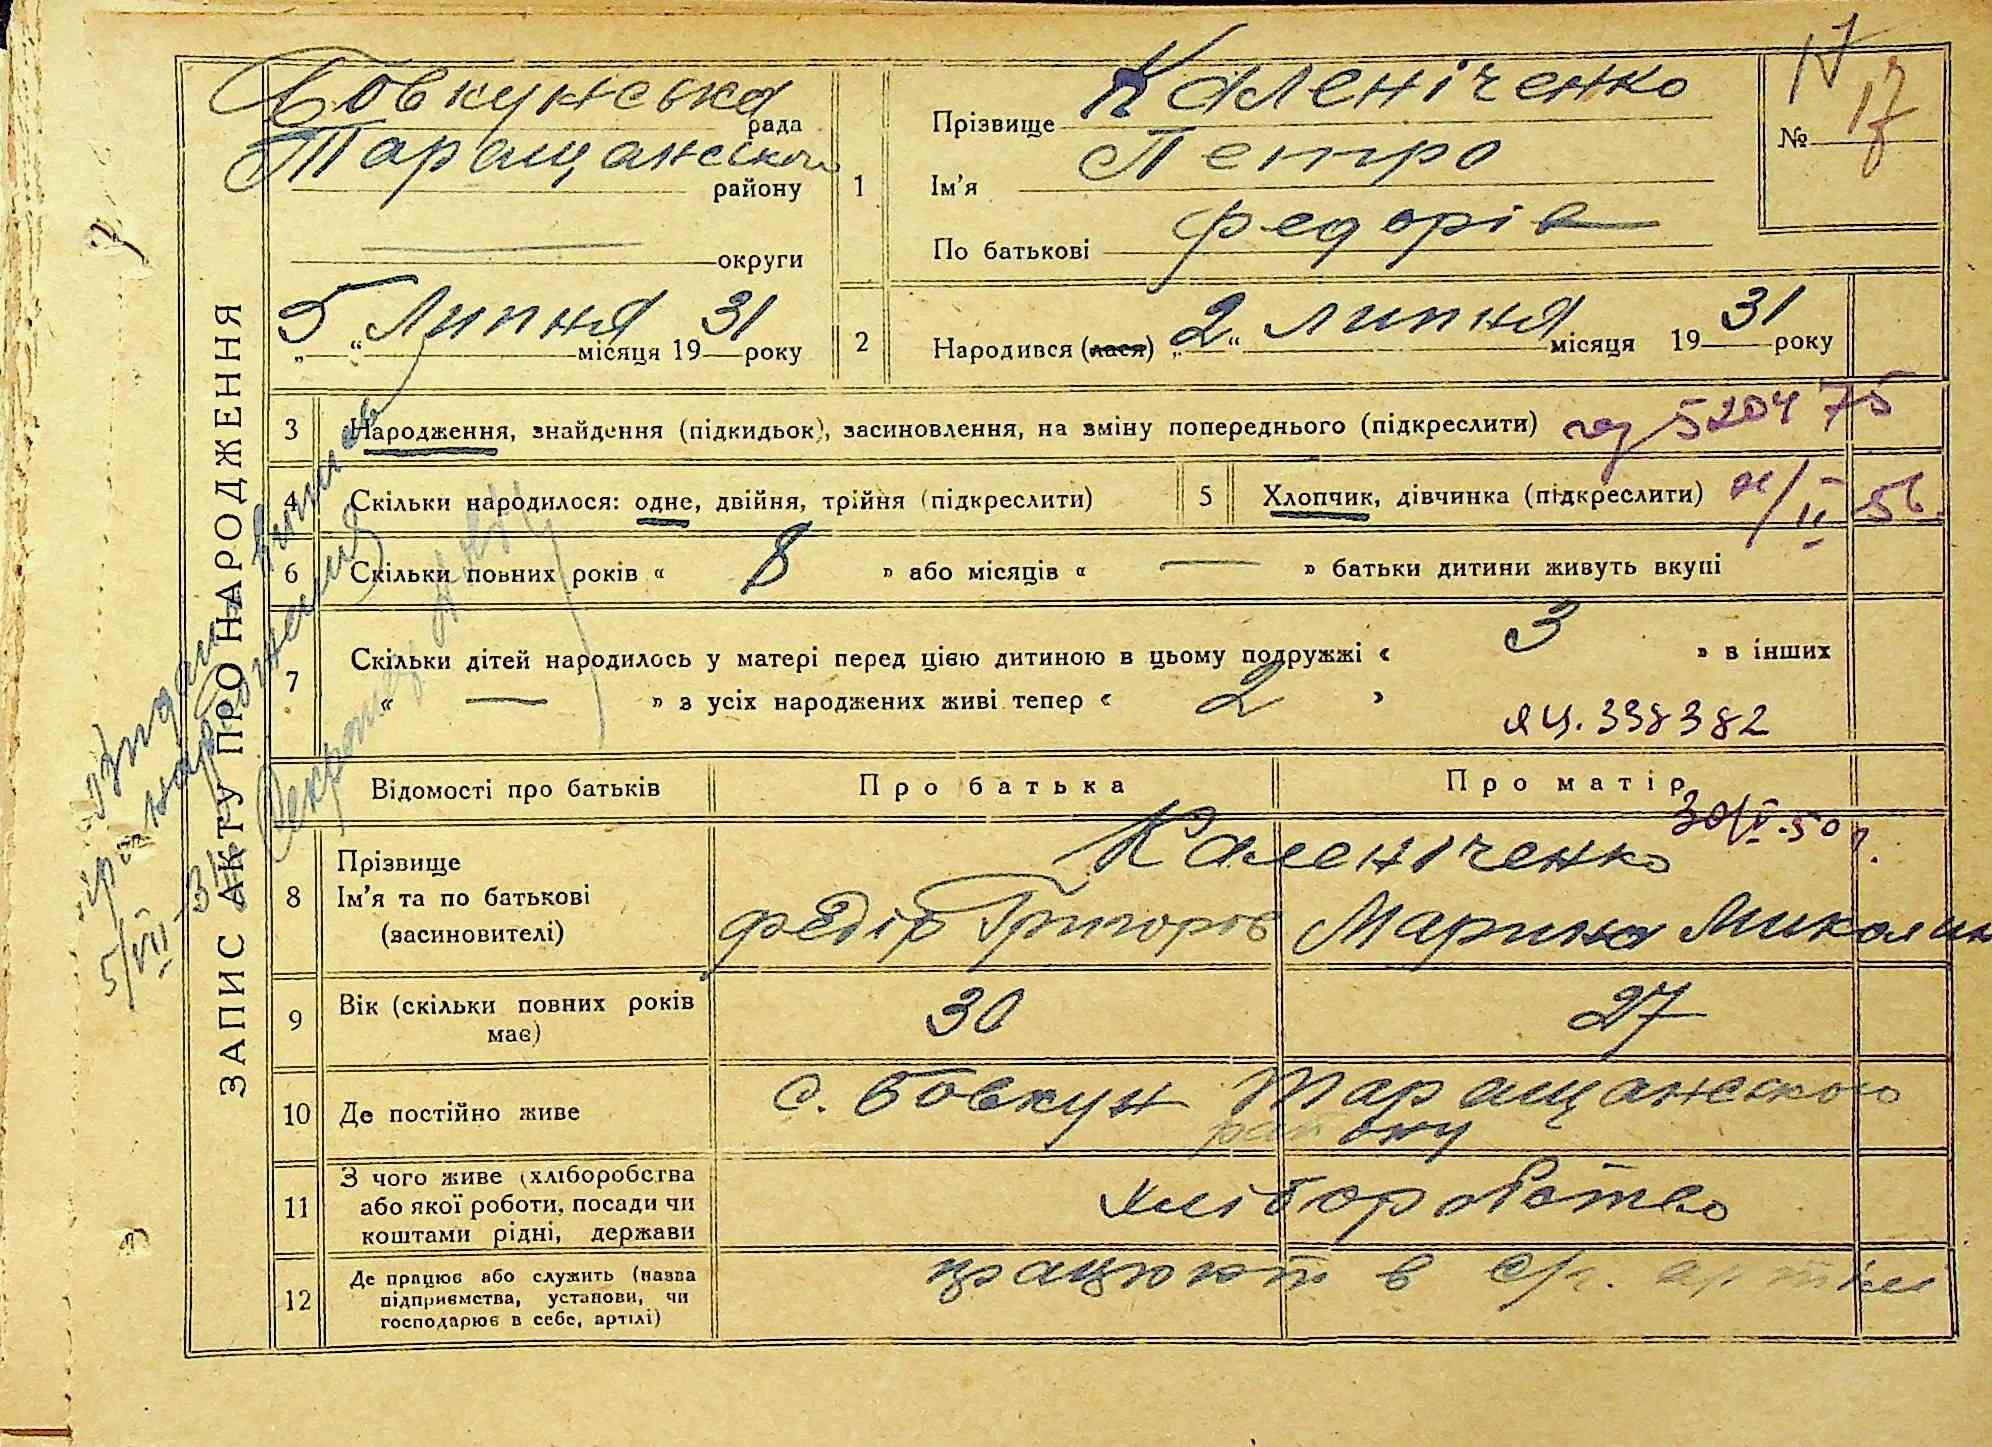 ЗАПИС АКТУ ПРО НАРОДЖЕННЯ
Бовкунська рада
Таращанського району
— округи
„5“ Липня місяця 1931 року
1
Прізвище Каленіченко
Ім'я Петро
По батькові Федорів
17
№ 17
2
Народився (лася) „2“ липня місяця 1931 року
3 Народження, знайдення (підкидьок), засиновлення, на зміну попереднього (підкреслити)
520475
4 Скільки народилося: одне, двійня, трійня (підкреслити)
5 Хлопчик, дівчинка (підкреслити)
/II 56.
6 Скільки повних років « 8 » або місяців « — » батьки дитини живуть вкупі
7 Скільки дітей народилось у матері перед цією дитиною в цьому подружжі « 3 » в інших
« — » з усіх народжених живі тепер « 2 »
ЯЦ. 338382
30/V-50 г.
Відомості про батьків Про батька Про матір
8 Прізвище
Ім'я та по батькові
(засиновителі)
Каленіченко
Федір Григорів Марина Миколи
9 Вік (скільки повних років має) 30 27
10 Де постійно живе с. Бовкун Таращанського
району
11 З чого живе (хліборобства
або якої роботи, посади чи
коштами рідні, держави
хліборобство
12 Де працює або служить (назва
підприємства, установи, чи
господарює в себе, артілі)
працюють в с/г. артілі
5/VII-31